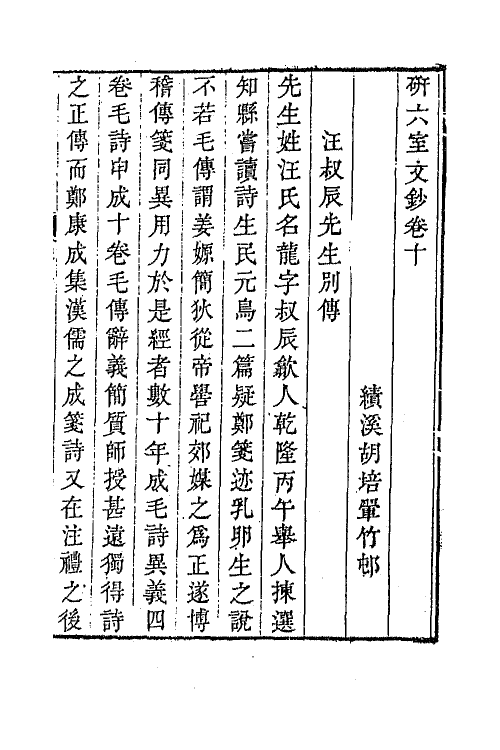 研六室文鈔卷十
績溪胡培翬竹邨
汪叔辰先生別傳
先生姓汪氏名龍字叔辰歙人乾隆丙午舉人揀選
知縣嘗讀詩生民元鳥二篇疑鄭箋迹乳卵生之說
不若毛傳謂姜嫄簡狄從帝嚳祀郊媒之爲正遂博
稽傳箋同異用力於是經者數十年成毛詩異義四
卷毛詩申成十卷毛傳辭義簡質師授甚遠獨得詩
之正傳而鄭康成集漢儒之成箋詩又在注禮之後